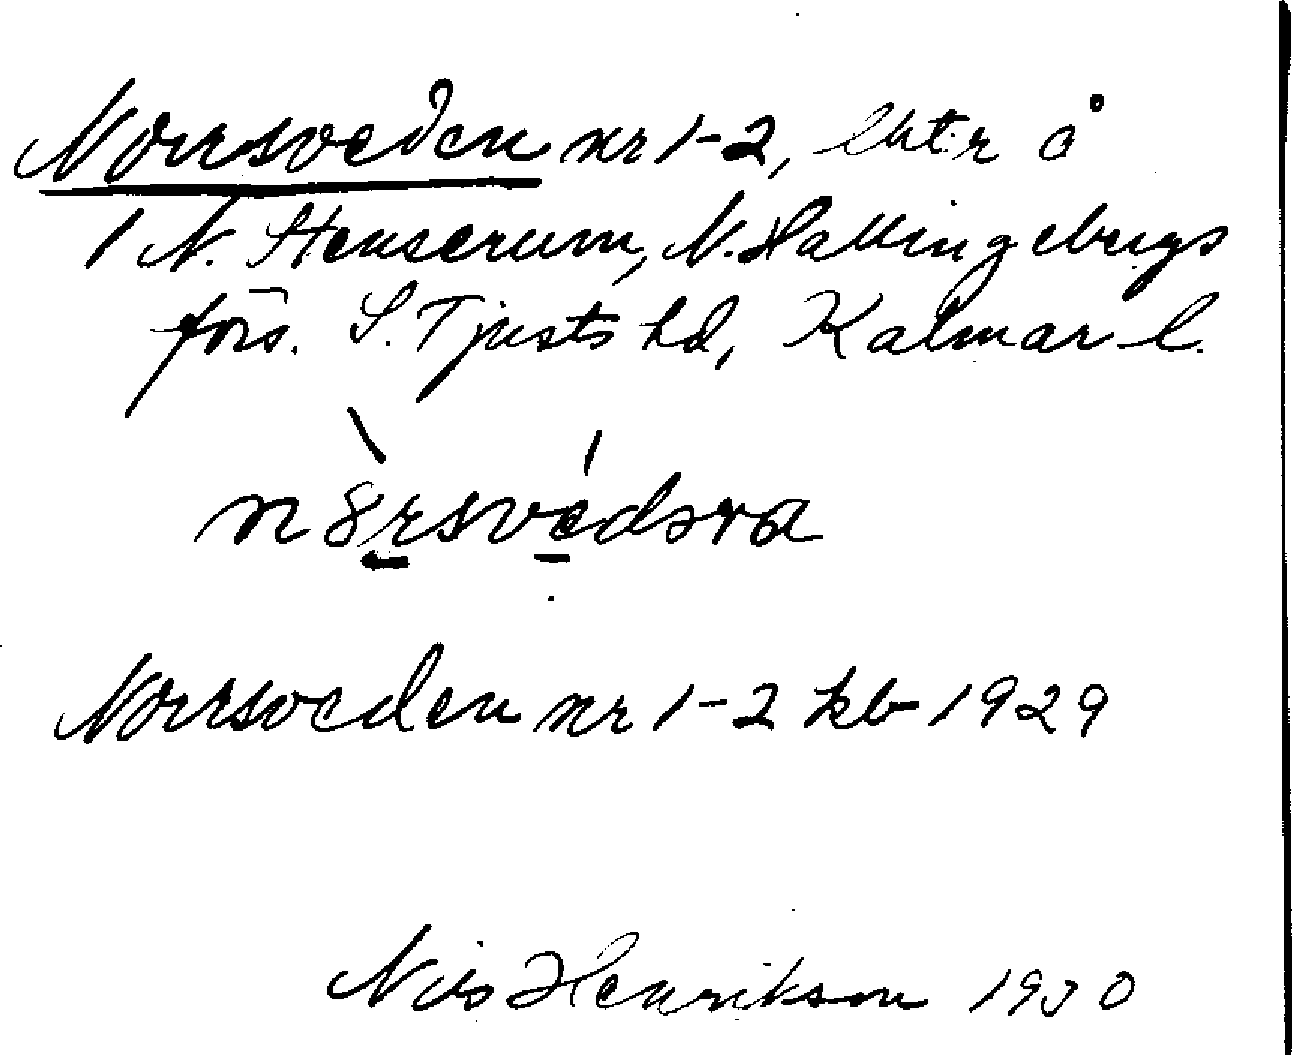 Norrsveden nr 1-2, lhtr å
1 N. Stenserum, N. Hallingebergs
förs. S. Tjusts hd, Kalmar l.
Norrsveden nr 1-2 kb 1929
Nils Henrikson 1930